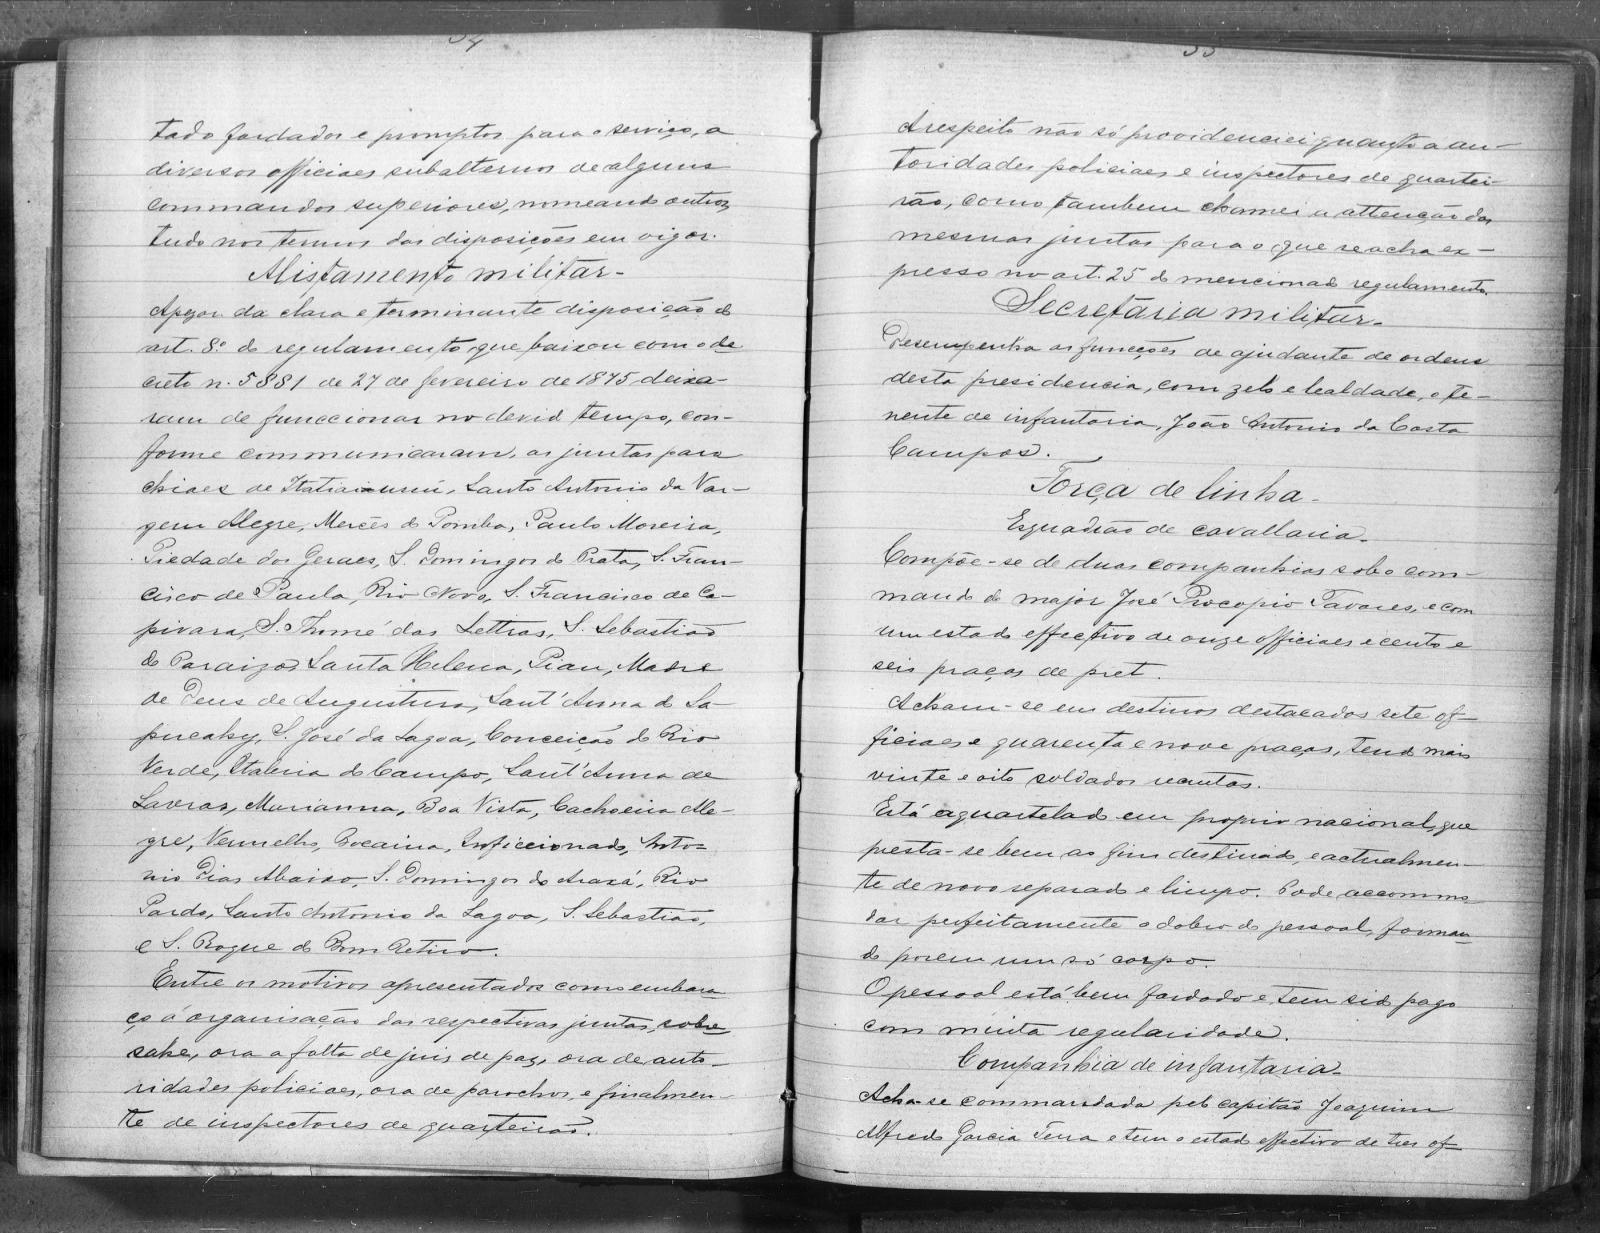 54
tado fardados e promptos para o serviço, a
diversos officiaes subalternos de alguns
commandos superiores, nomeando outros,
tudo nos termos das disposições em vigor.
Alistamento militar-
Apezar da clara e terminante disposição do
art. 8º do regulamento que baixou com o de
creto n. 5881 de 27 de fevereiro de 1875 deixa-
ram de funccionar no devido tempo, con-
forme communicaram, as juntas paro
chiaes de Itatiaiussú, Santo Antonio da Var-
gem Alegre, Mercês do Pomba, Paulo Moreira,
Piedade dos Geraes, S. Domingos do Prata, S. Fran-
cisco de Paula, Rio Novo, S. Francisco de Ca-
pivara, S. Thomé das Lettras, S. Sebastião
do Paraizo, Santa Helena, Piau, Madre
de Deus de Angustura, Sant'Anna do Sa-
pucahy, S. José da Lagoa, Conceição do Rio
Verde, Itabira do Campo, Sant'Anna de
Lavras, Marianna, Boa Vista, Cachoeira Ale-
gre, Vermelho, Bocaina, Inficcionado, Anto-
nio Dias Abaixo, S. Domingos do Araxá, Rio
Pardo, Santo Antonio da Lagoa, S. Sebastião,
e S. Roque do Bom Retiro.
Entre os motivos apresentados como embara
ço á organisação das respectivas juntas, sobre
sahe, ora a falta de juiz de paz, ora de auto-
ridades policiaes, ora de parochos, e finalmen-
te de inspectores de quarteirão.
55
A respeito não só providenciei quanto a au-
toridades policiaes e inspectores de quartei-
rão, como tambem chamei a attenção das
mesmas juntas para o que se acha ex-
presso no art. 25 do mencionado regulamento.
Secretaria militar-
Desempenha as funcções de ajudante de ordens
desta presidencia, com zelo e lealdade, o te-
nente de infantaria, João Antonio da Costa
Campos.
Força de linha-
Esquadrão de cavallaria-
Compõe-se de duas companhias sob o com-
mando do major José Procopio Tavares, e com
um estado effectivo de onze officiaes e cento e
seis praças de pret.
Acham-se em destinos destacados sete of-
ficiaes e quarenta e nove praças, tendo mais
vinte e oito soldados recrutas.
Está aquartelado em proprio nacional, que
presta-se bem ao fim destinado, e actualmen-
te de novo separado e limpo. Pode accommo
dar perfeitamente o dobro do pessoal, forman
do porem um só corpo.
O pessoal está bem fardado e tem sido pago
com muita regularidade.
Companhia de infantaria-
Acha-se commandada pelo capitão Joaquim
Alfredo Garcia Terra e tem o estado effectivo de tres of-